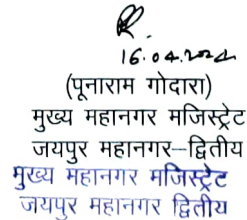 16.04.2024
(पूनाराम गोदारा)
मुख्य महानगर मजिस्ट्रेट
जयपुर महानगर–द्वितीय
मुख्य महानगर मजिस्ट्रेट
जयपुर महानगर द्वितीय